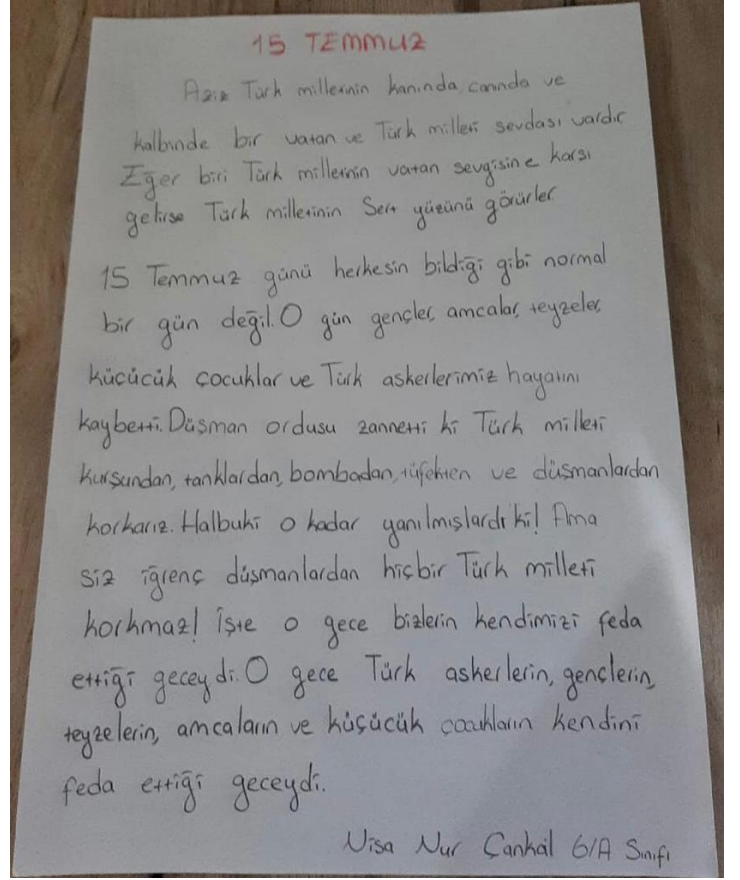 15 TEMMUZ
Aziz Türk milletinin kanında, canında ve
kalbinde bir vatan ve Türk milleti sevdası vardır
Eğer biri Türk milletinin vatan sevgisine karşı
gelirse Türk milletinin Sert yüzünü görürler
15 Temmuz günü herkesin bildiği gibi normal
bir gün değil. O gün gençler, amcalar, teyzeler,
küçücük çocuklar ve Türk askerlerimiz hayatını
kaybetti. Düşman ordusu zannetti ki Türk milleti
kurşundan, tanklardan, bombadan, tüfekten ve düşmanlardan
korkarız. Halbuki o kadar yanılmışlardı ki! Ama
siz iğrenç düşmanlardan hiçbir Türk milleti
korkmaz! İşte o gece bizlerin kendimizi feda
ettiği geceydi. O gece Türk askerlerin, gençlerin,
teyzelerin, amcaların ve küçücük çocukların kendini
feda ettiği geceydi.
Nisa Nur Çankal 6/A Sınıfı